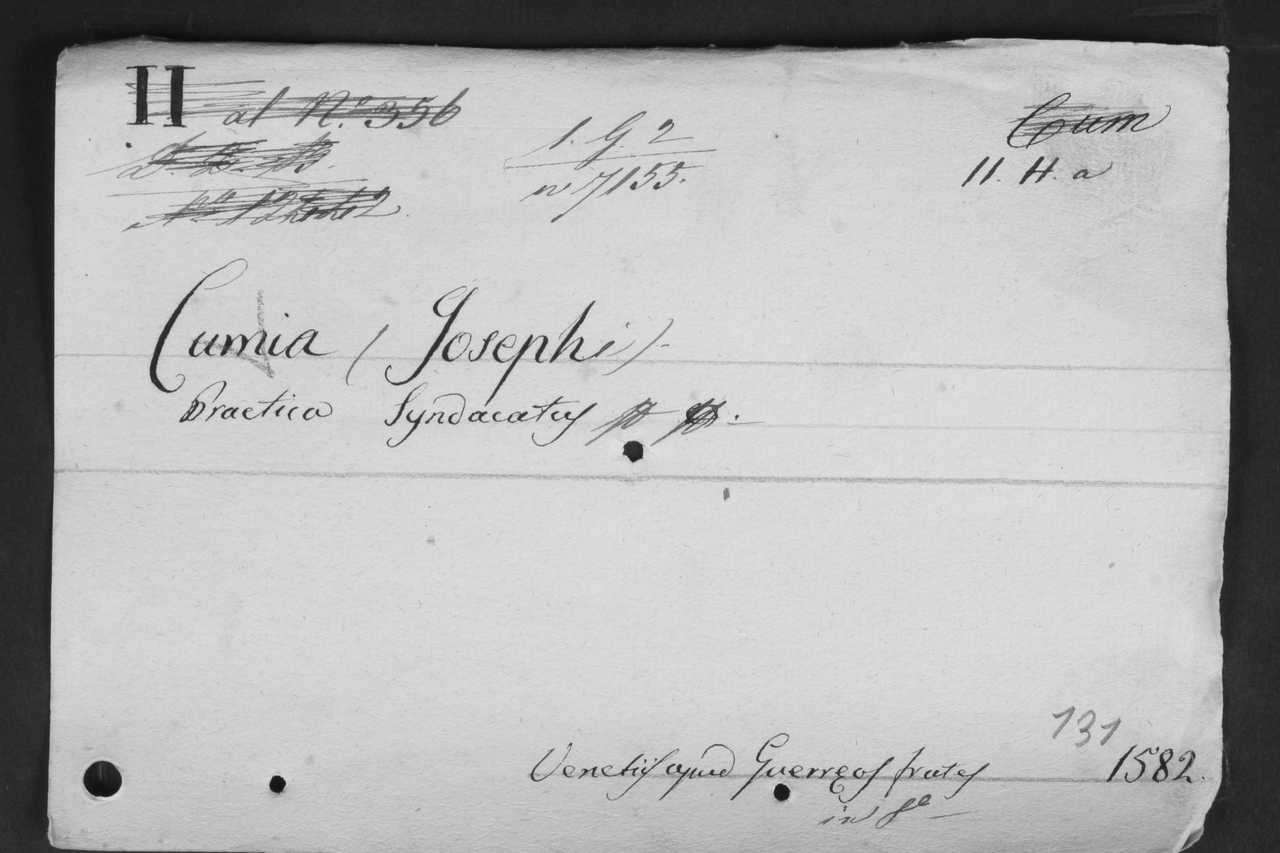 II al N.º 356
1. G. 2
nº 7155.
Cum
11. H. a
Cumia (Josephi).
Practica Syndacatus
131
Venetiis apud Guerreos fratres 1582.
in fº